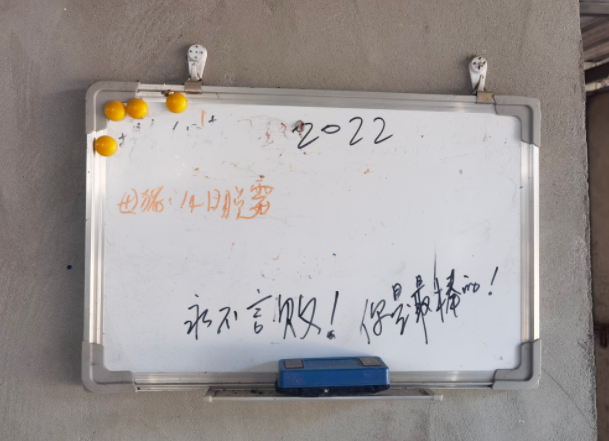 2022
14日脱雾
永不言败！你是最棒的！